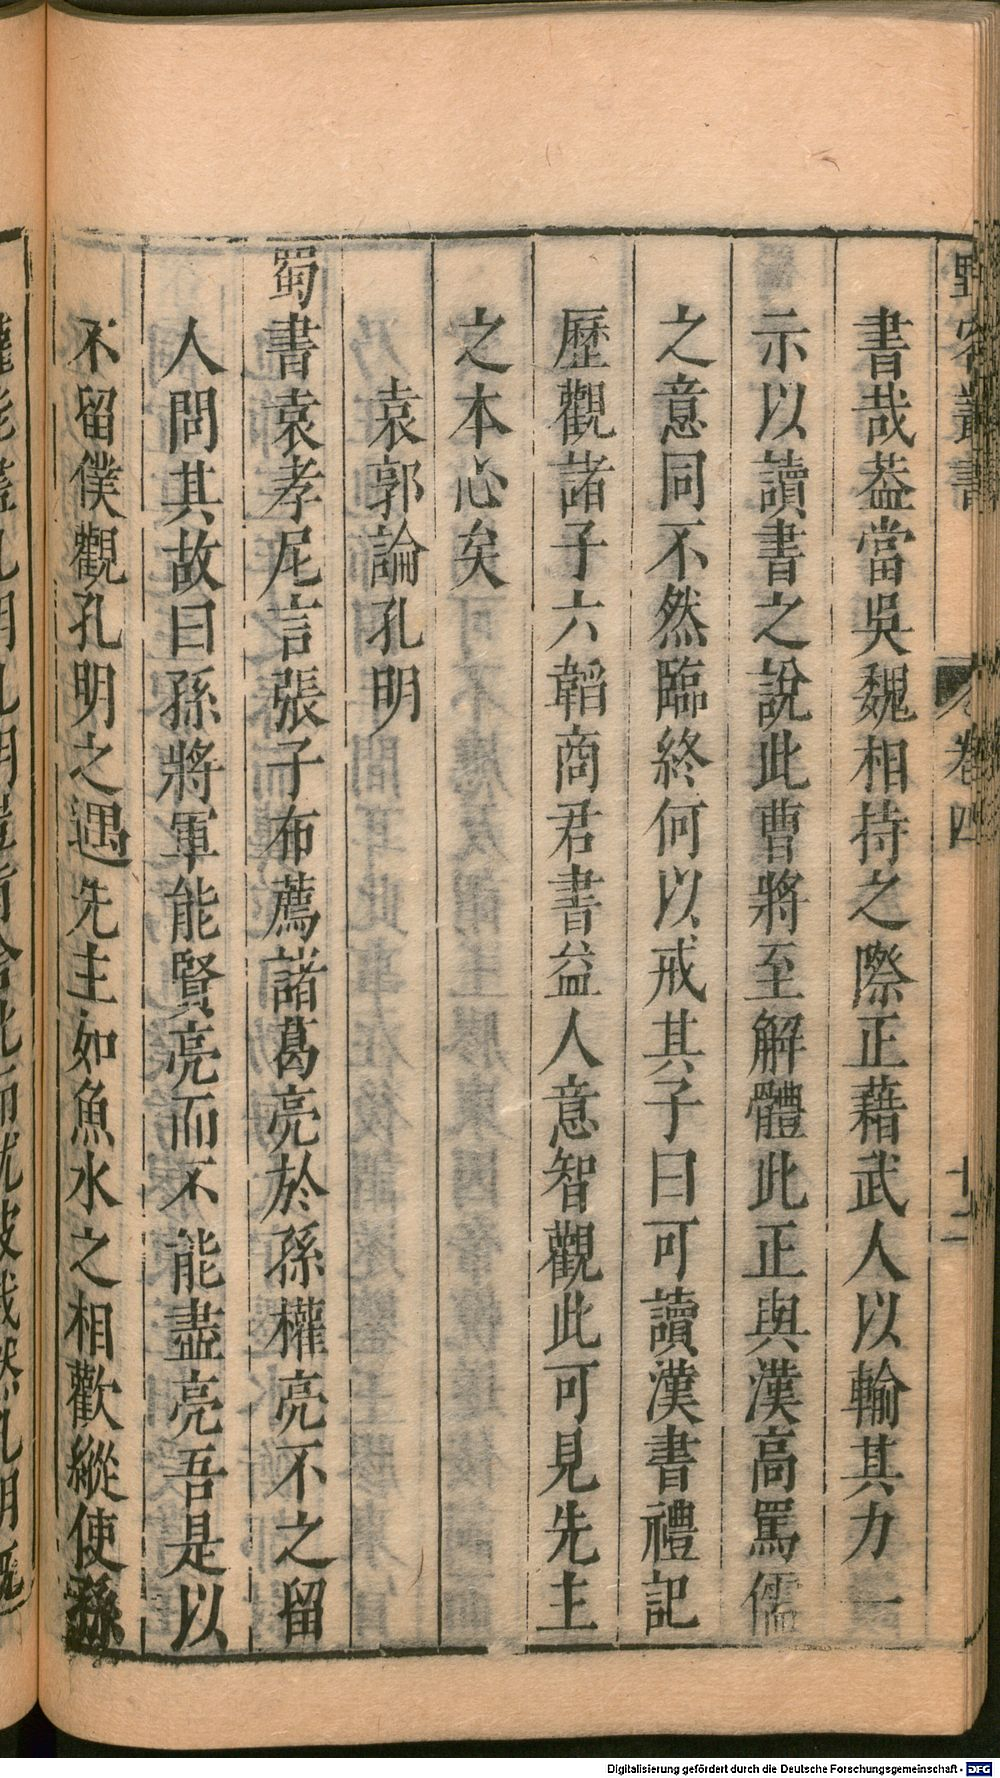 野客叢書 卷四 十二
書哉葢當吳魏相持之際正藉武人以輸其力一
示以讀書之說此曹將至解體此正與漢高罵儒
之意同不然臨終何以戒其子曰可讀漢書禮記
歷觀諸子六韜商君書益人意智觀此可見先主
之本心矣
袁郭論孔明
蜀書袁孝尼言張子布薦諸葛亮於孫權亮不之留
人問其故曰孫將軍能賢亮而不能盡亮吾是以
不留僕觀孔明之遇先主如魚水之相歡縱使孫
Digitalisierung gefördert durch die Deutsche Forschungsgemeinschaft - DFG